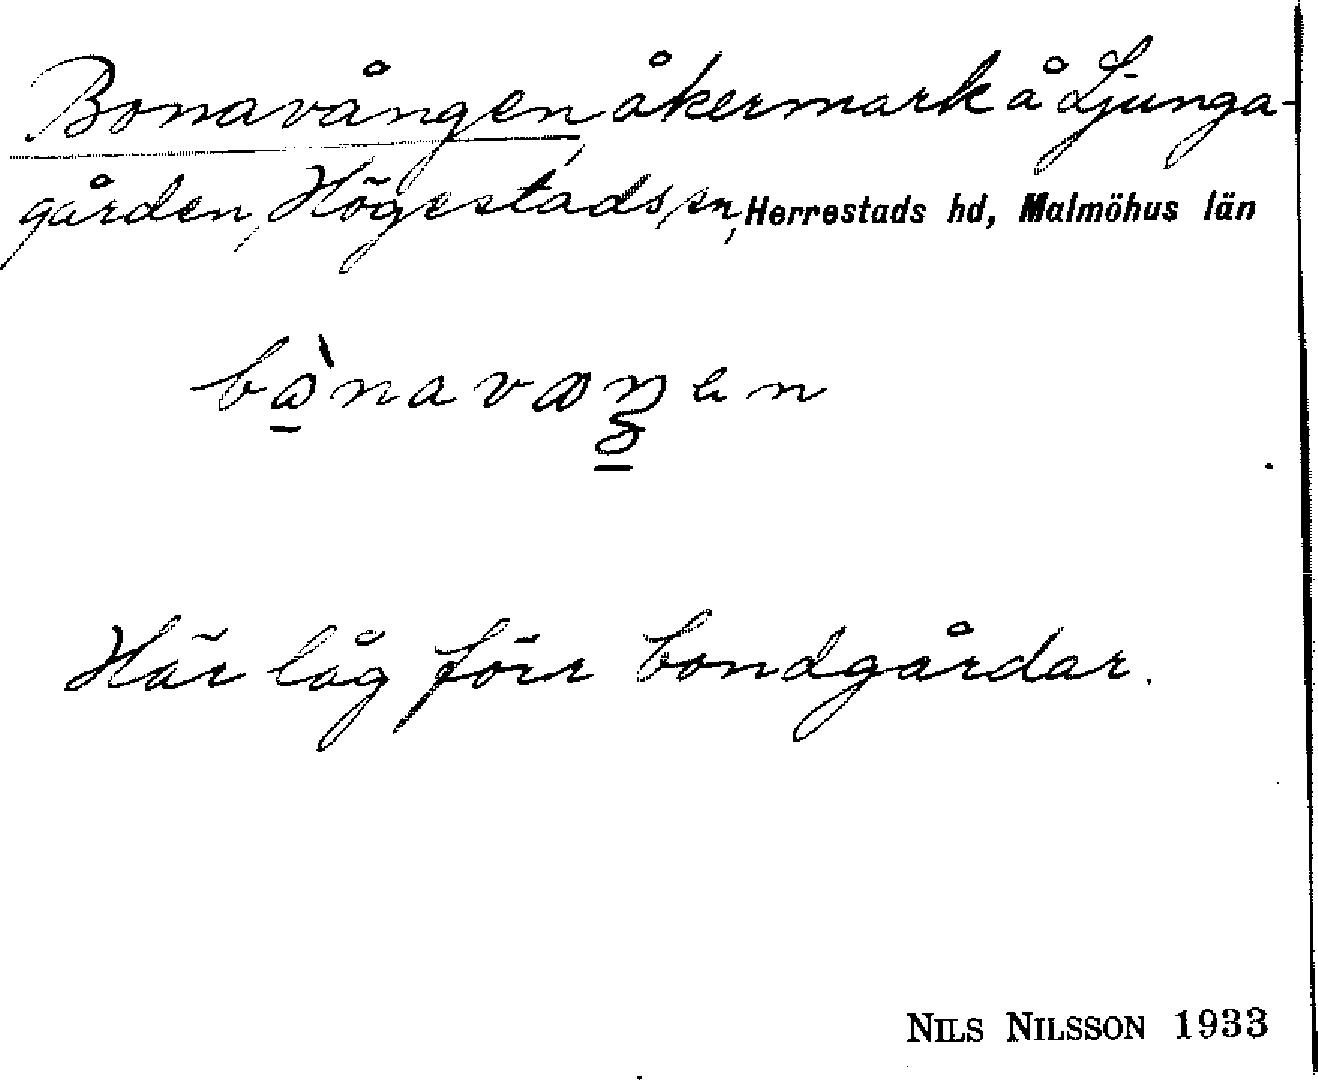 Bonavången åkermark å Ljunga-
gården, Högestads sn, Herrestads hd, Malmöhus län
bànavaŋen
Här låg förr bondgårdar.
NILS NILSSON 1933